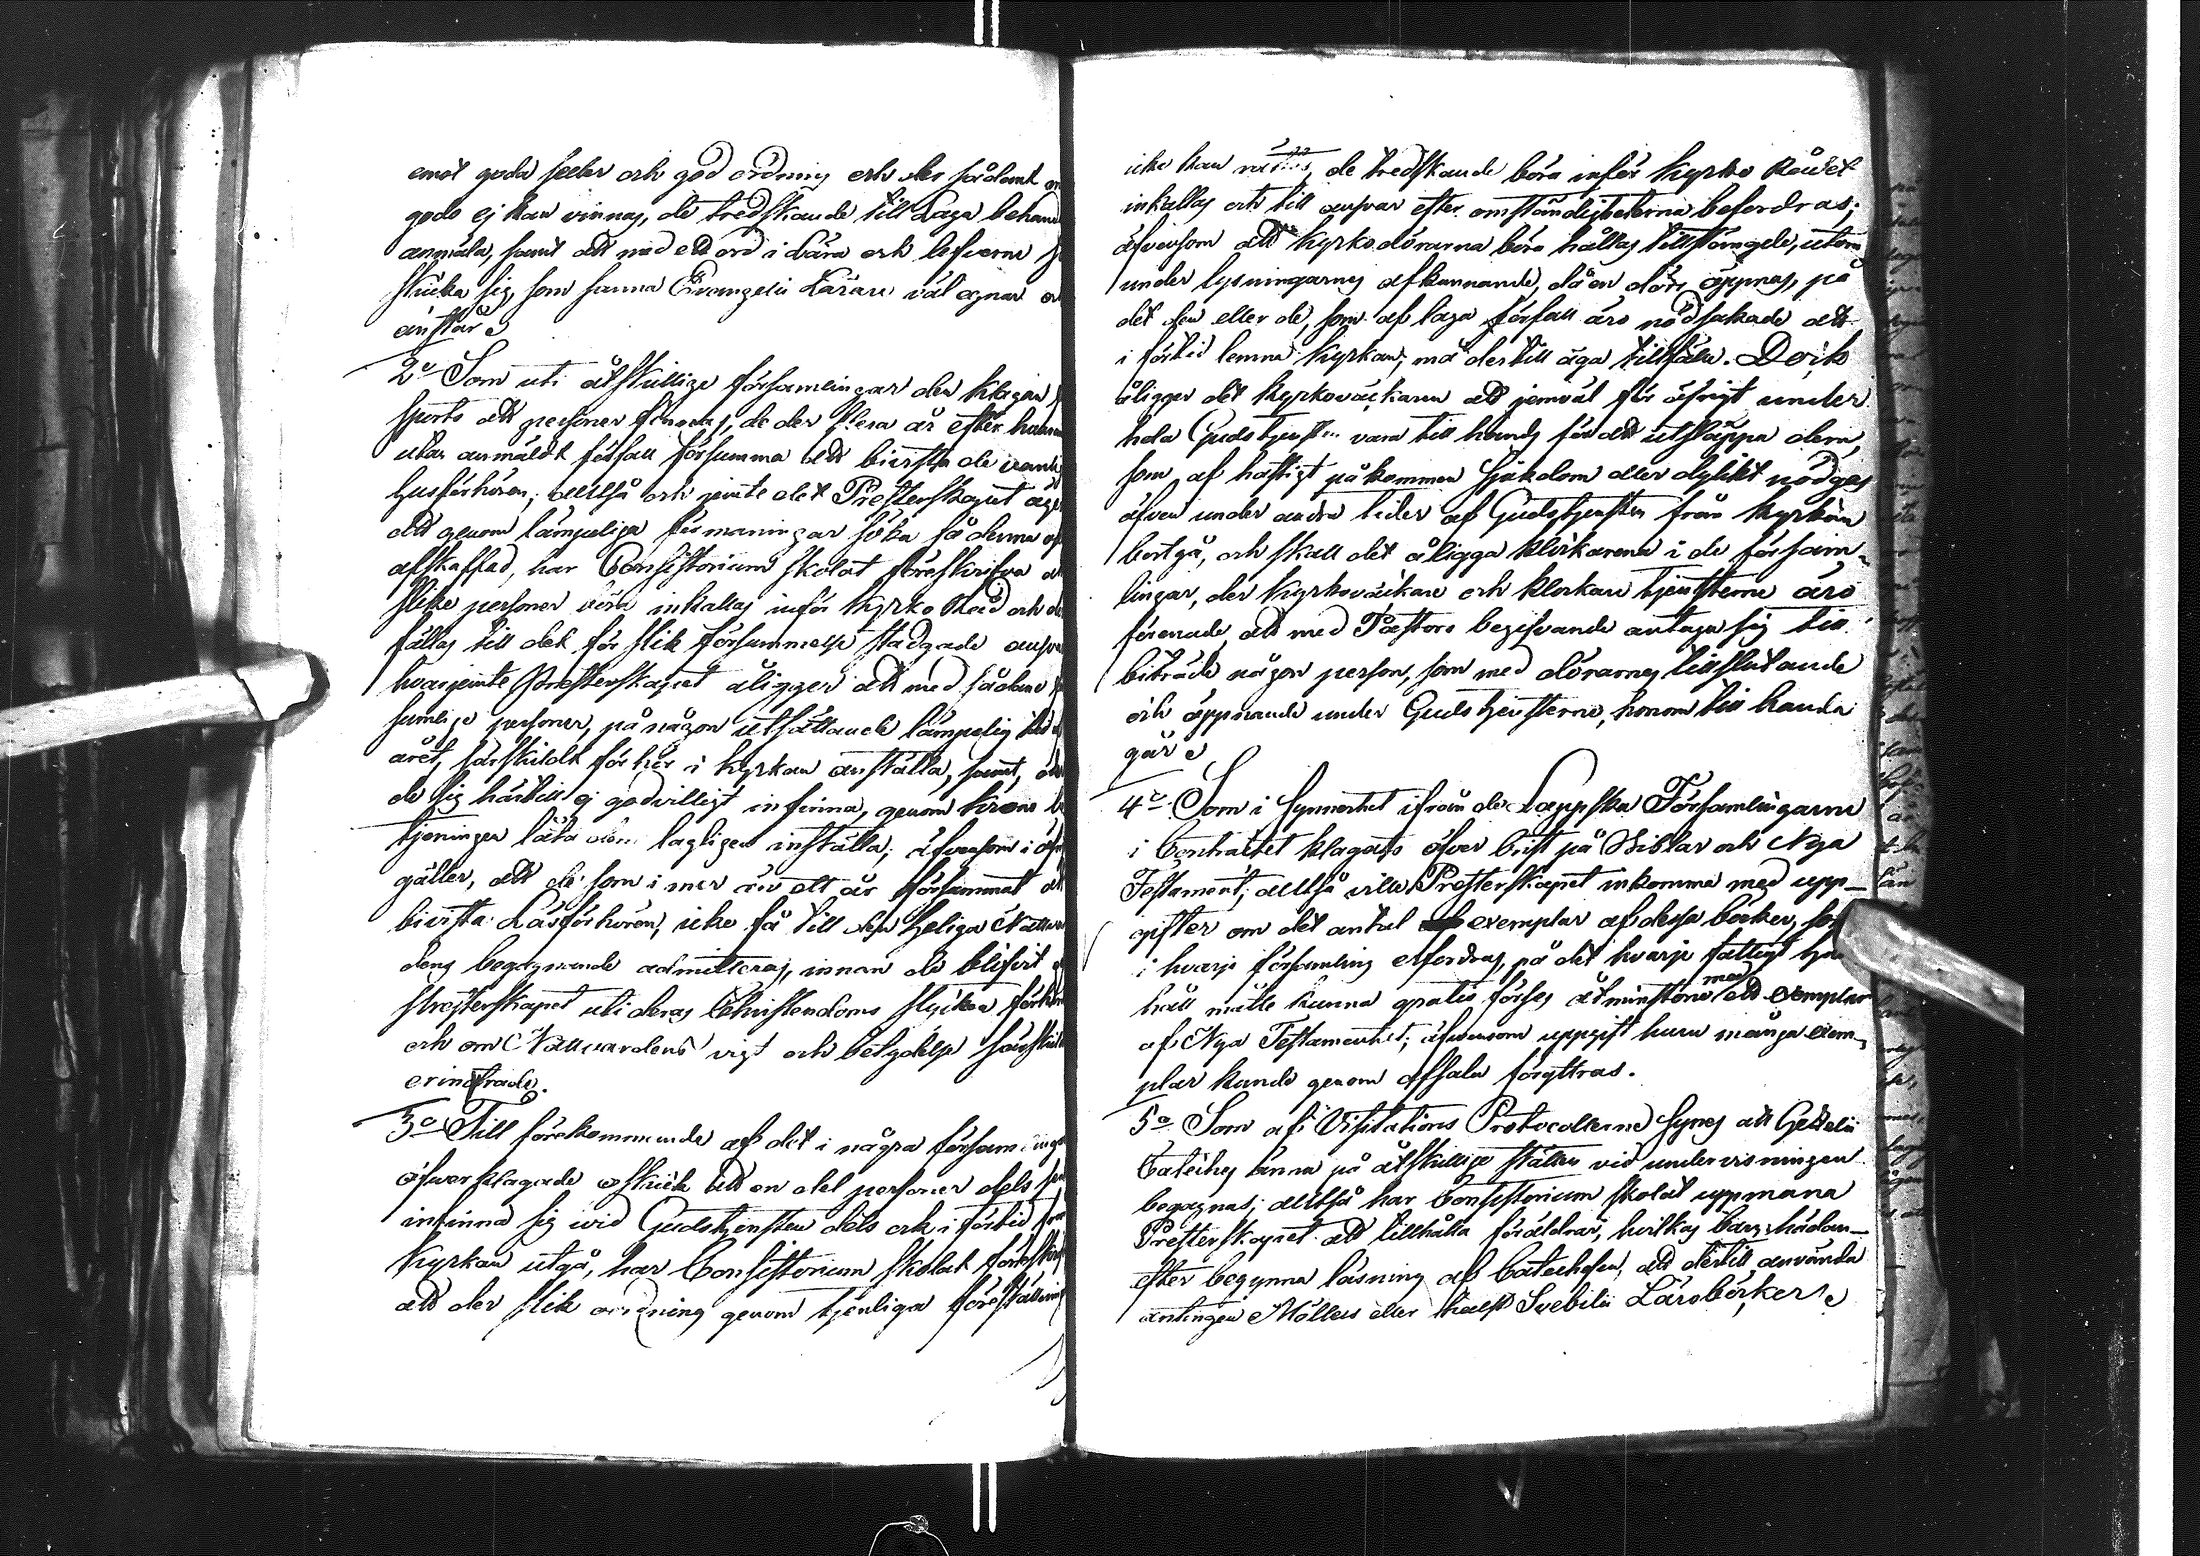 emot goda seder och god ordning och der sådant
godo ej kan vinnas, de tredskande till Laga
anmäla, samt att med ett ord i Lära och lefverne
skicka sig, som sanna Evangelii Lärare väl egnar
anstår
2o Som uti åtskillige församlingar den klagan
sports att personer finnas, de der flera år efter
utan anmäldt förfall försumma att bivista de
husförhören; alltså och jemte det Presterskapet
att genom lämpeliga förmaningar söka få denna
afskaffad, har Consistorium skolat föreskrifva
slike personer böra inkallas inför Kyrko Råd och
fällas till det för slik försummelse stadgade
hvarjemte Presterskapet åligger att med sådane
personer, på någon utsättande lämpelig tid
året, särskildt förhör i Kyrkan anställa, samt,
de sig härtill ej godvilligt infinna, genom krono
tjeningen låta dem lagligen inställa; äfvensom i
gäller, att de som i mer än ett år försummat
bivista Läsförhören, icke få till den Heliga
begagnande admitteras, innan de blifvit
Presterskapet uti deras Christendoms stycken
och om Nattvardens vigt och betydelse
erindrade.
3o Till förekommande af det i några
öfverklagade oskick att en del personer dels
infinna sig wid Gudstjensten dels ock i förtid
Kyrkan utgå, har Consistorium skolat
att der slik oordning genom tjenliga
icke kan de tredskande böra inför Kyrko Rådet
inkallas och till ansvar efter omständigheterna befordras;
äfvensom att Kyrkodörarna böra hållas tillstängde, utom
under lysningarnes afkunnande, då en dörr öppnas, på
det den eller de, som af laga förfall äro nödsakade att
i förtid lemna Kyrkan, må dertill äga tillfälle. Dock
åligger det Kyrkoväktaren att jemväl för öfrigt under
hela Gudstjensten vara till hands för att utsläppa dem,
som af häftigt påkommen sjukdom eller dylikt nödgas
äfven under andra tider af Gudstjensten från Kyrkan
bortgå, och skall det åligga klockarena i de försam-
lingar, der Kyrkoväktare och klockare tjensterne äro
förenade, att med Pastors begifvande antaga sig till
biträde någon person, som med dörarnes tillslutande
och öppnande under Gudstjensterne, honom till handa
går
4o Som i synnerhet ifrån de Lappska Församlingarne
i Contractet klagats öfver brist på Biblar och Nya
Testament; alltså ville Presterskapet inkomma med upp-
gifter om det antal exemplar af dessa böcker,
i hvarje församling erfordras, på det hvarje fattigt
håll måtte kunna gratis förses åtminstone med ett exemplar
af Nya Testamentet; äfvensom uppgift huru många exem-
plar kunde genom afsalu föryttras.
5o Som af Visitations Protocollerne synes att
Cateches ännu på åtskillige ställen vid undervisningen
begagnas; alltså har Consistorium skolat uppmana
Presterskapet att tillhålla föräldrar, hvilkas barn hädan-
efter begynna läsning af Catechesen, att dertill använda
antingen Möllers eller helst Svebilii Läroböcker